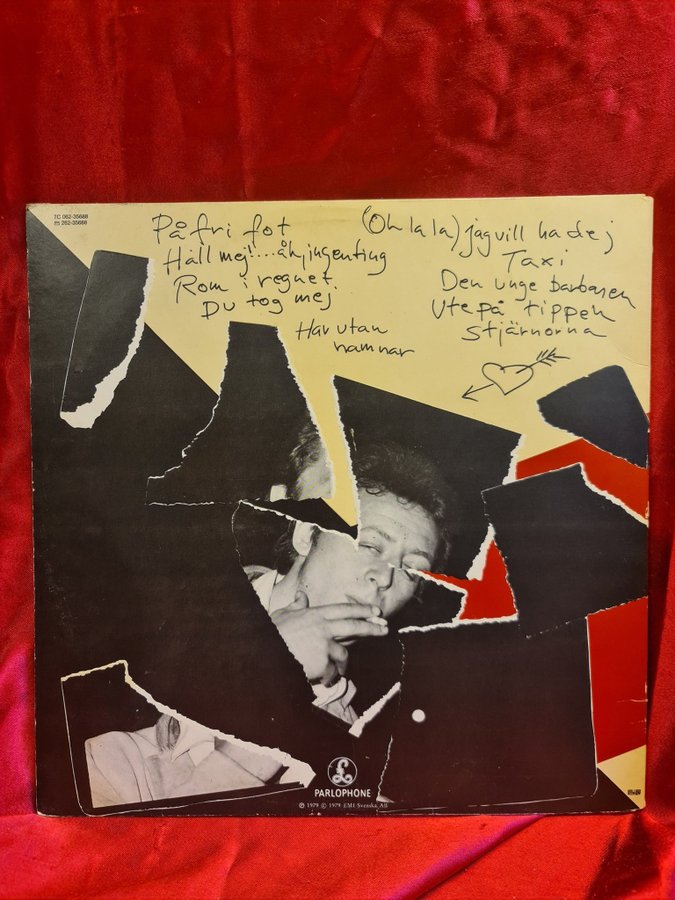 7C 062-35688
262-35688
På fri fot
Håll mej!...åh, ingenting
Rom i regnet
Du tog mej
Har utan
namnar
(Oh la la) jag vill ha dej
Taxi
Den unge barbaren
Ute på tippen
Stjärnorna
PARLOPHONE
℗ 1979 © 1979 EMI Svenska AB